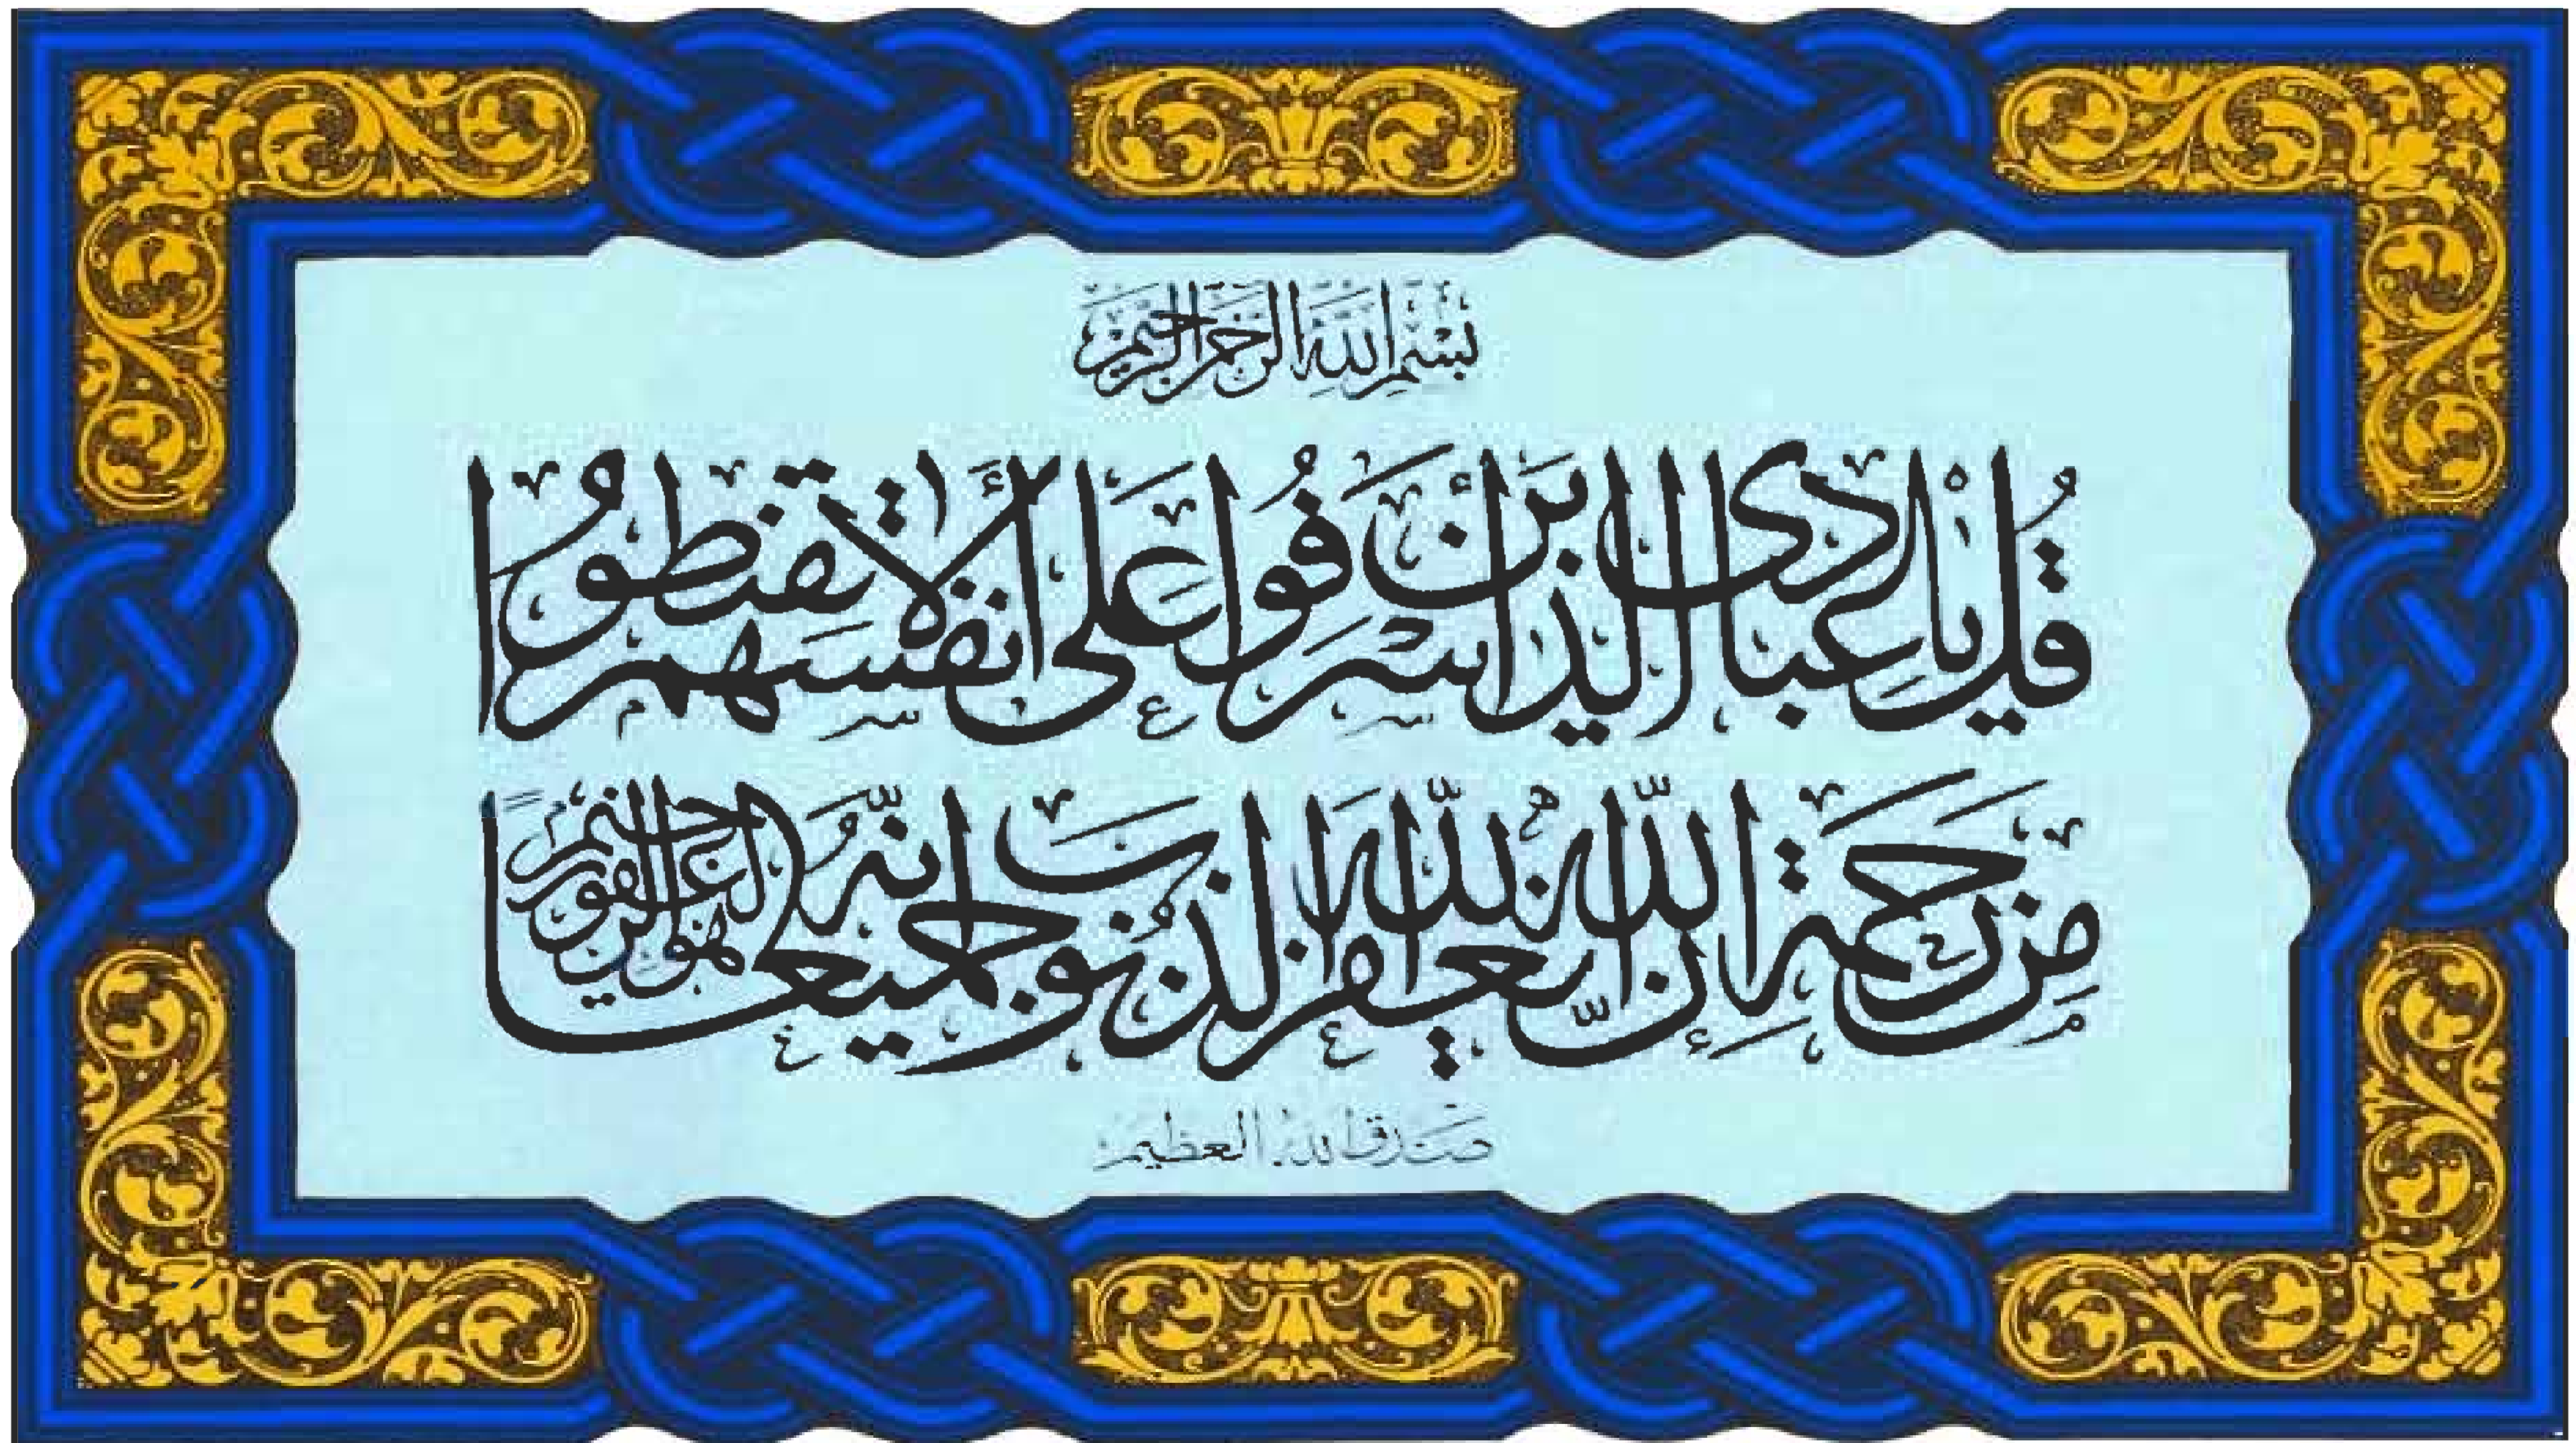 بسم الله الرحمن الرحيم
قُل يا عِبادى الذين أسرَفُوا عَلى أنفسهم لا تقنطوُا
مِن رَحمَة اللّٰه إنّ اللّٰه يغفر الذنوبَ جميعًا إنّهُ هو الغفور الرحيم
صدق الله العظيم